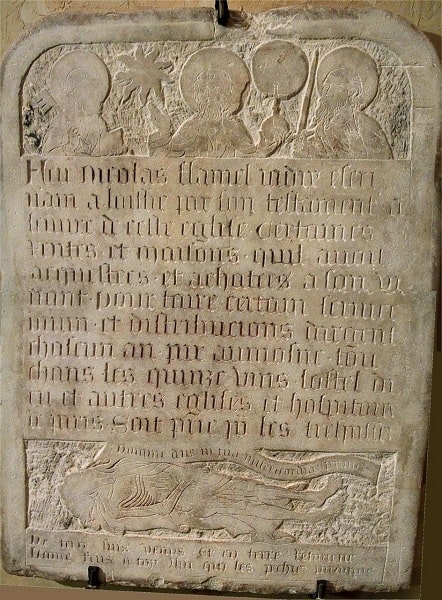 Feu Nicolas flamel iadix escri
uain a laissie par son testament a
leuure de ceste eglise certaines
rentes et maisons. quil auoit
acquestees. et achatees a son vi
uant. pour faire certain seruice
diuin. et distribucions dargent
chascun an par aumosne. tou
chans les quinze vins. lostel di
eu et autres eglises et hospitaux
a paris. Soit prie les trespassez
Domine deus in tua misericordia speraui
De terre suis venus et en terre retourne
Lame rens a toy ihu qui les pechies pardonne